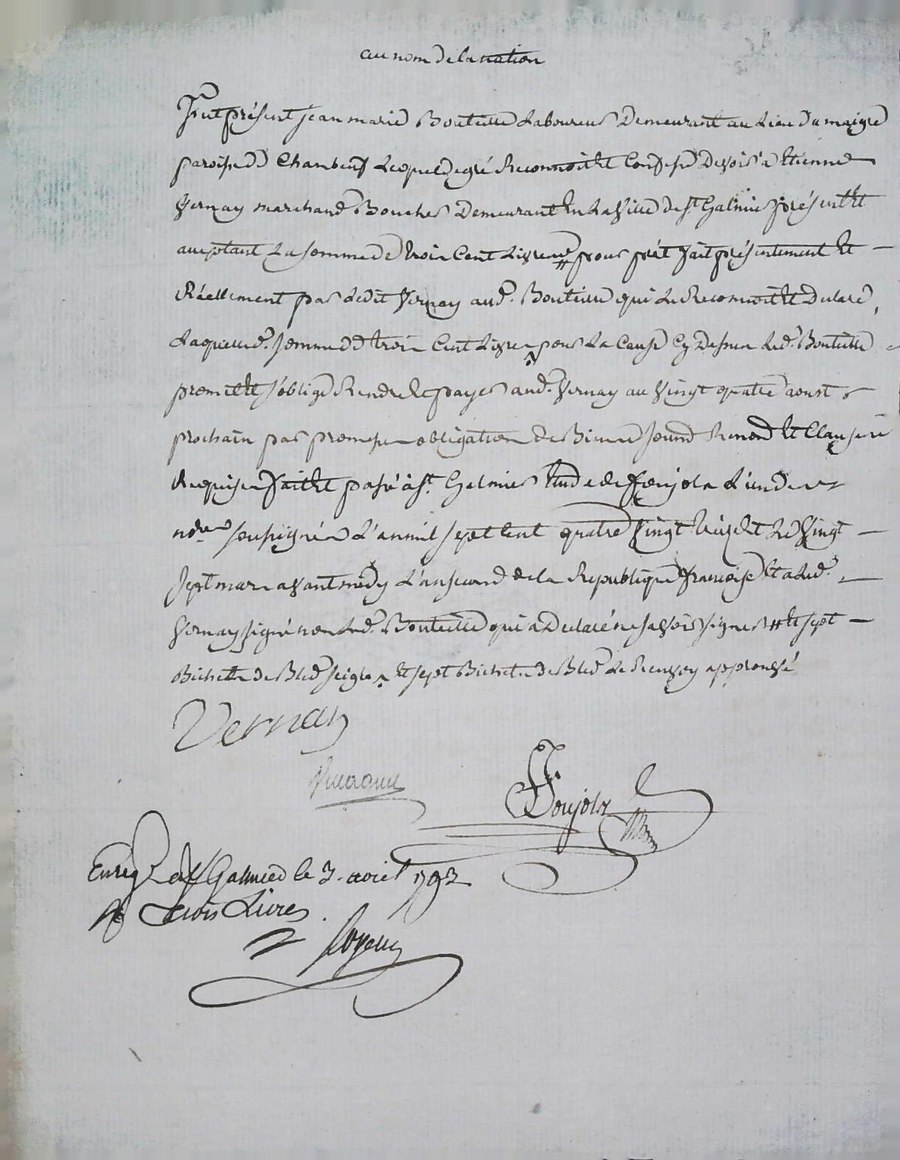 au nom de la nation
Fut présent jean marie Bouteille Laboureur Demeurant au Lieu du maigre
paroisse de Chambeuf Lequel de gré Reconnoit et Confesse Devoir a Etienne
Vernay marchand Boucher Demeurant En La Ville de St Galmier présent Et
acceptant La somme de trois Cent Livres pour prét fait présentement Et
Réellement par Ledit Vernay aud. Bouteille qui Le Reconnoit Et Declare,
Laquelle d. somme de trois Cent Livres pour La Cause Cy Dessus Led. Bouteille
promet Et s'oblige Rendre Et payer aud. Vernay au Vingt quatre aoust
prochain par promesse obligation de Biens soumd Renond Et Clauses
Requises fait Et passé a St. Galmier Etude de Foujols L'un des
ndres soussigné L'an mil sept Cent quatre Vingt treize Et Le Vingt
sept mars avant midy L'an second de la Republique francoise Et a Led.
Vernay signé non Led. Bouteille qui a Declaré ne savoir signer # Et sept
Bichets de Bled seigle, Et sept Bichets de Bled Le Renvoy approuvé
Vernay
Foujols
Enreg. a St Galmier le 3. avril 1793
Trois Livres